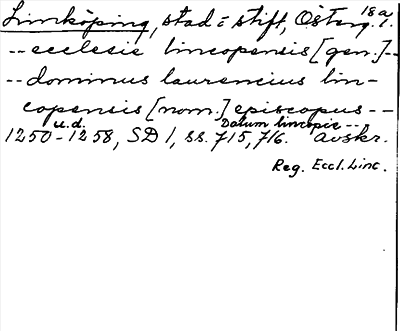 18a
Linköping, stad o stift, Österg. l.
-- ecclesie lincopensis [gen.] --
-- dominus laurencius lin-
copensis [nom.] episcopus --
u.d. Datum lincopie --
1250-1258, SD 1, ss. 715, 716. Avskr.
Reg. Eccl. Linc.